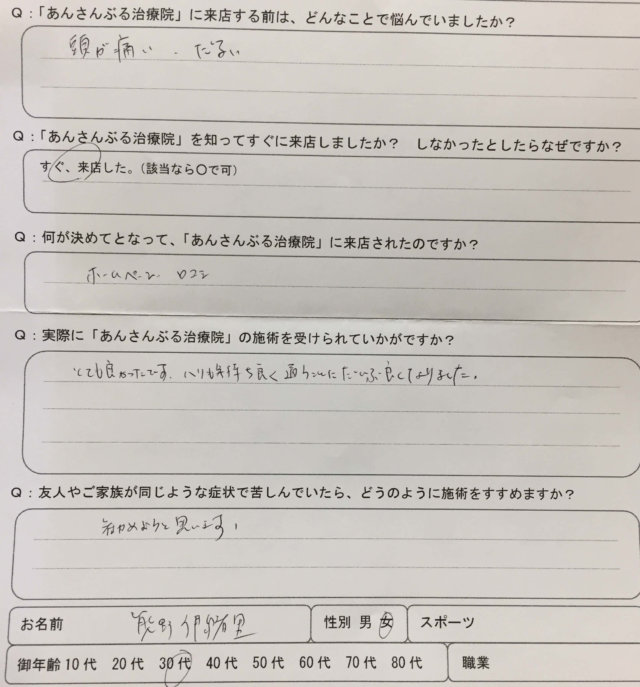 Q:「あんさんぶる治療院」に来店する前は、どんなことで悩んでいましたか?
頭が痛い．だるい
Q:「あんさんぶる治療院」を知ってすぐに来店しましたか?　しなかったとしたらなぜですか?
すぐ、来店した。(該当なら〇で可)
Q:何が決めてとなって、「あんさんぶる治療院」に来店されたのですか?
ホームページ　口コミ
Q:実際に「あんさんぶる治療院」の施術を受けられていかがですか?
とても良かったです。ハリも気持ち良く通うごとにだいぶ良くなりました。
Q:友人やご家族が同じような症状で苦しんでいたら、どうのように施術をすすめますか?
と思います。
お名前　熊野
性別 男 女
スポーツ
御年齢 10代　20代　30代　40代　50代　60代　70代　80代
職業